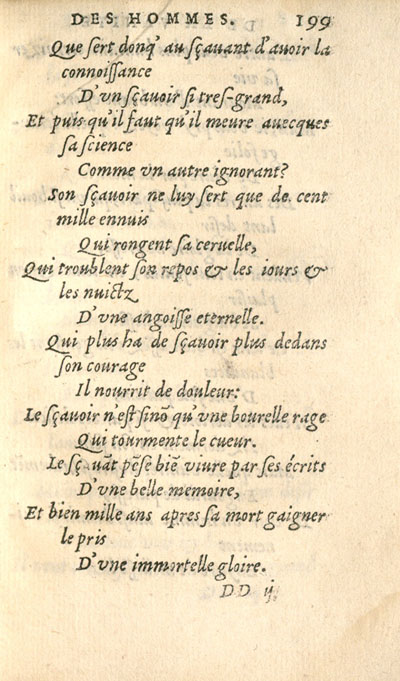 DES HOMMES. 199
Que sert donq' au sçauant d'auoir la
connoissance
D'vn sçauoir si tres-grand,
Et puis qu'il faut qu'il meure auecques
sa science
Comme vn autre ignorant?
Son sçauoir ne luy sert que de cent
mille ennuis
Qui rongent sa ceruelle,
Qui troublent son repos & les iours &
les nuictz
D'vne angoisse eternelle.
Qui plus ha de sçauoir plus dedans
son courage
Il nourrit de douleur:
Le sçauoir n'est sinõ qu'vne bourelle rage
Qui tourmente le cueur.
Le sçauãt pẽse biẽ viure par ses écrits
D'vne belle memoire,
Et bien mille ans apres sa mort gaigner
le pris
D'vne immortelle gloire.
DD ij